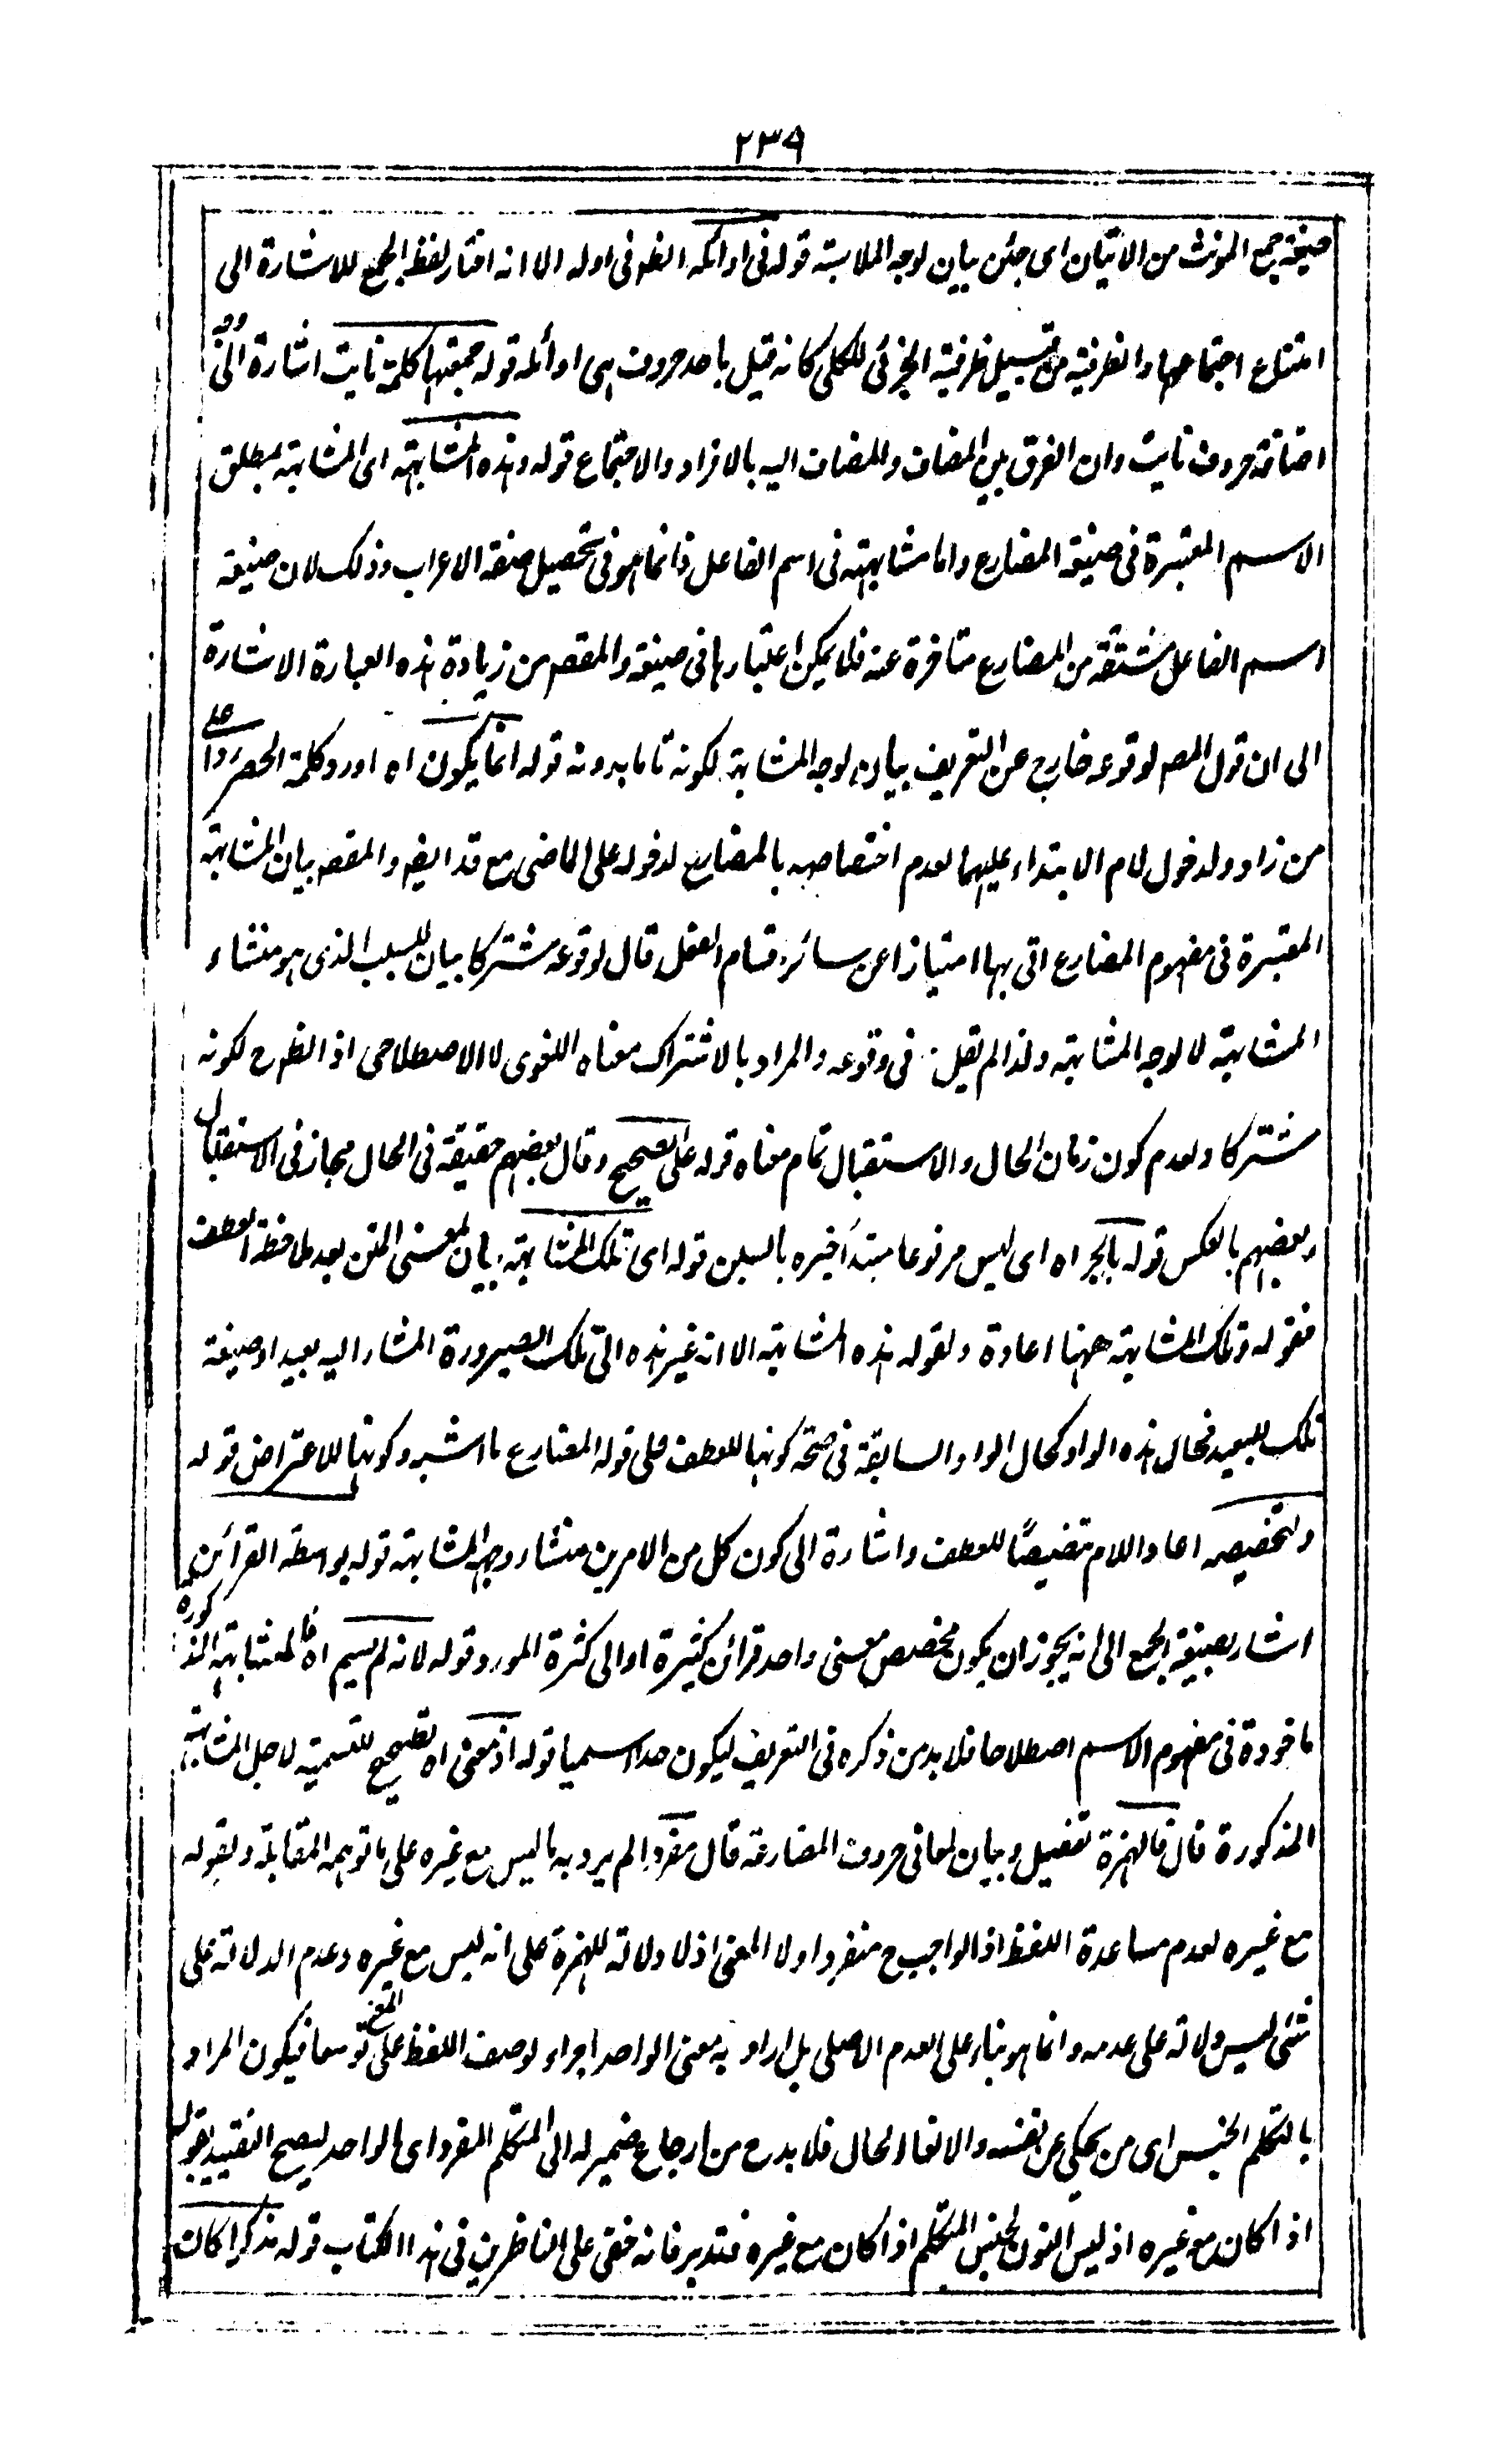 ٢٣٩
صيغة جمع المونث من الاتيان اى جئن بيان لوجه الملابسة قوله فى اوائله الظ فى اوله الا انه اختار لفظ الجمع للاشارة الى
امتناع اجتماعها والظرفية من قبيل ظرفية الجزئى للكلى كانه قيل باحد حروف هى اوائله قوله جمعتها كلمة نايت اشارة الى وجه
اضافة حروف نايت وان الفرق بين المضاف والمضاف اليه بالافراد والاجتماع قوله وهذه المشابهة اى المشابهة بمطلق
الاسم المعتبرة فى صيغة المضارع واما مشابهته فى اسم الفاعل فانما هو فى تحصيل صفة الاعراب وذلك لان صيغة
اسم الفاعل مشتقة من المضارع متاخرة عنه فلا يمكن اعتبارها فى صيغته والمقصم من زيادة هذه العبارة الاشارة
الى ان قول المصم لوقوعه خارج عن التعريف بيان لوجه المشابهة لكونه تاما بدونه قوله انما يكون اه اورد كلمة الحصر ردا على
من زاد ولدخول لام الابتداء عليهما لعدم اختصاصه بالمضارع لدخوله على الماضى مع قد ايضم والمقصم بيان المشابهة
المعتبرة فى مفهوم المضارع اتى بها امتيازا عن سائر اقسام الفعل قال لوقوعه مشتركا بيان للسبب الذى هو منشاء
المشابهة لا لوجه المشابهة ولذا لم يقل فى وقوعه والمراد بالاشتراك معناه اللغوى لا الاصطلاحى اذ الظ ح لكونه
مشتركا ولعدم كون زمان الحال والاستقبال تمام معناه قوله على الصحيح وقال بعضهم حقيقة فى الحال مجاز فى الاستقبال
وبعضهم بالعكس قوله بالجر اه اى ليس مرفوعا مبتدأ خبره بالسين قوله اى تلك المشابهة بيان لمعنى المتن بعد ملاحظة العطف
فقوله وتلك المشابهة ههنا اعادة لقوله هذه المشابهة الا انه غير هذه الى تلك لصيرورة المشار اليه بعيدا وصيغة
تلك للبعيد فحال هذه الواو كحال الواو السابقة فى صحة كونها للعطف على قوله المضارع ما اشبه وكونها للاعتراض قوله
ولتخصيصه اعاد اللام تنصيصًا للعطف واشارة الى كون كل من الامرين منشاء وجه المشابهة قوله بواسطة القرائن
اشار بصيغة الجمع الى انه يجوز ان يكون مخصص معنى واحد قرائن كثيرة او الى كثرة المورد قوله لانه لم يسم اه فالمشابهة المذكورة
ماخوذة فى مفهوم الاسم اصطلاحا فلا بد من ذكره فى التعريف ليكون حدا اسميا قوله اذ معنى اه تصحيح للتسمية لاجل المشابهة
المذكورة قال فالهمزة تفصيل وبيان لمعانى حروف المضارعة قال مفردا لم يرد به ما ليس مع غيره على ما توهمه المقابلة ولقوله
مع غيره لعدم مساعدة اللفظ اذ الواجب ح منفردا ولا المعنى اذ لا دلالة للهمزة على انه ليس مع غيره وعدم الدلالة على
شئى ليس دلالة على عدمه وانما هو بناء على العدم الاصلى بل اراد به معنى الواحد اجراء لوصف اللفظ على المعنى توسعا فيكون المراد
بالمتكلم الجنس اى من يحكى عن نفسه والالغا الحال فلا بد ح من ارجاع ضمير له الى المتكلم المفرد اى الواحد ليصح التقييد بقوله
اذا كان مع غيره اذ ليس النون لجنس المتكلم اذا كان مع غيره فتدبر فانه خفى على الناظرين فى هذا الكتاب قوله مذكرا كان